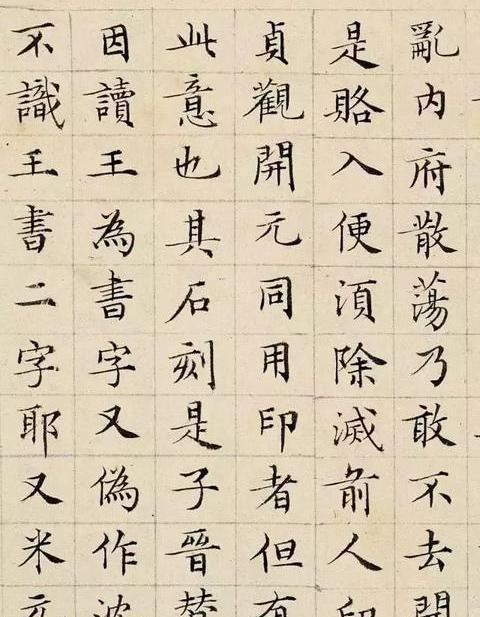 亂内府散蕩乃敢不去開
是賂入便湏除滅前人印
貞觀開元同用印者但有
此意也其石刻是子晉
因讀王為書字又偽作
不識王書二字耶又米元